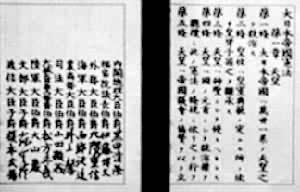 大日本帝國憲法
第一章 天皇
第一條 大日本帝國ハ萬世一系ノ天皇之ヲ
統治ス
第二條 皇位ハ皇室典範ノ定ムル所ニ依リ
皇男子孫之ヲ繼承ス
第三條 天皇ハ神聖ニシテ侵スヘカラス
第四條 天皇ハ國ノ元首ニシテ統治權ヲ
總攬シ此ノ憲法ノ條規ニ依リ之ヲ行フ
第五條 天皇ハ帝國議會ノ協贊ヲ以テ立
内閣總理大臣伯爵黑田清隆
樞密院議長伯爵伊藤博文
外務大臣伯爵大隈重信
海軍大臣伯爵西鄕從道
農商務大臣伯爵井上馨
司法大臣伯爵山田顯義
大藏大臣兼内務大臣伯爵松方正義
陸軍大臣伯爵大山巖
文部大臣子爵森有禮
遞信大臣子爵榎本武揚